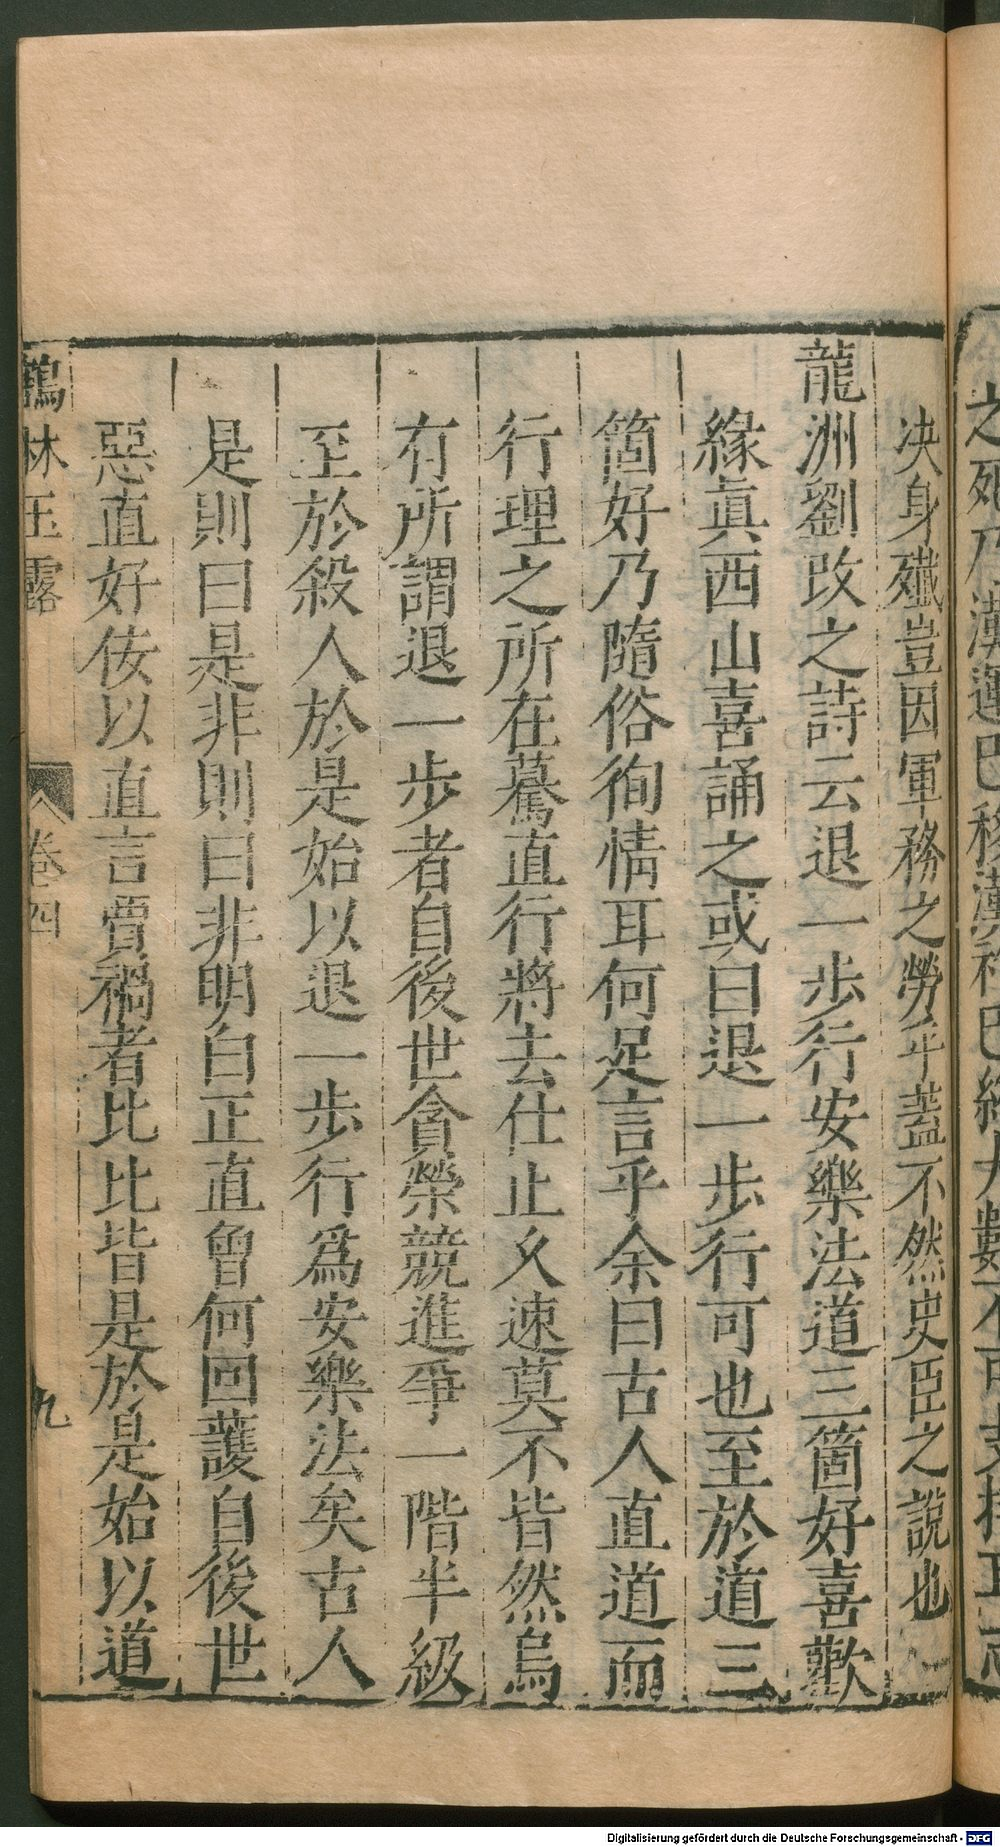 之死乃漢運已移漢祚已終大數不可支持耳志
决身殲豈因軍務之勞乎蓋不然史臣之說也
龍洲劉改之詩云退一步行安樂法道三箇好喜歡
緣眞西山喜誦之或曰退一步行可也至於道三
箇好乃隨俗徇情耳何足言乎余曰古人直道而
行理之所在驀直行將去仕止久速莫不皆然烏
有所謂退一步者自後世貪榮競進爭一階半級
至於殺人於是始以退一步行爲安樂法矣古人
是則曰是非則曰非明白正直曾何回護自後世
惡直好佞以直言賈禍者比比皆是於是始以道
鶴林玉露
卷四
九
Digitalisierung gefördert durch die Deutsche Forschungsgemeinschaft - DFG